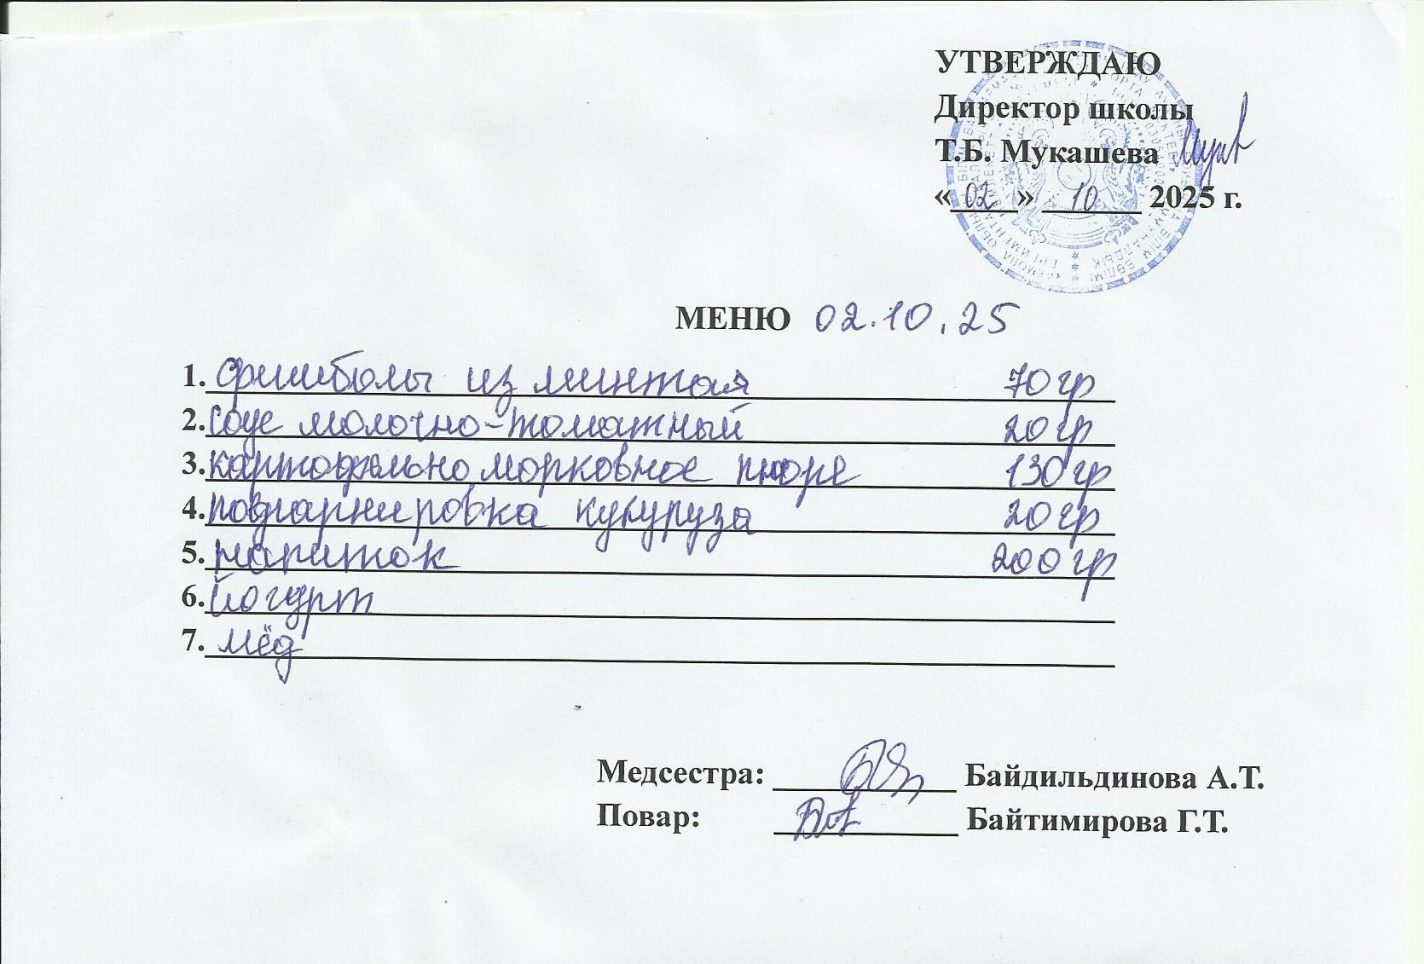 УТВЕРЖДАЮ
Директор школы
Т.Б. Мукашева
«02» 10 2025 г.
МЕНЮ 02.10.25
1. Фишболы из минтая 70 гр
2. Соус молочно-томатный 20 гр
3. картофельно морковное пюре 130 гр
4. подгарнировка кукуруза 20 гр
5. напиток 200 гр
6. Йогурт
7. Мёд
Медсестра: Байдильдинова А.Т.
Повар: Байтимирова Г.Т.